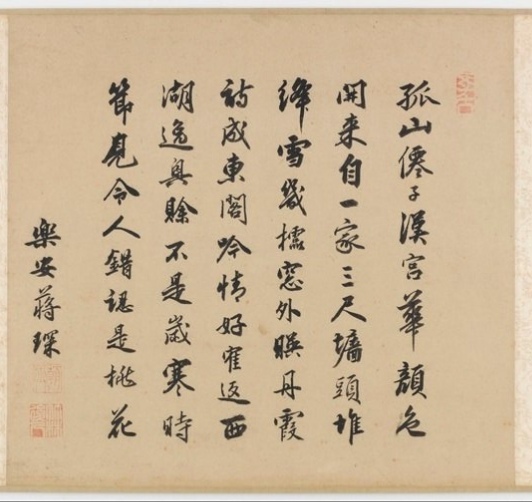 孤山僊子漢宮華顏色
開来自一家三尺墻頭堆
絳雪幾櫺窓外暎丹霞
詩成東閣吟情好寉返西
湖逸興賖不是歲寒時
節覓令人錯認是桃花
樂安蔣琛